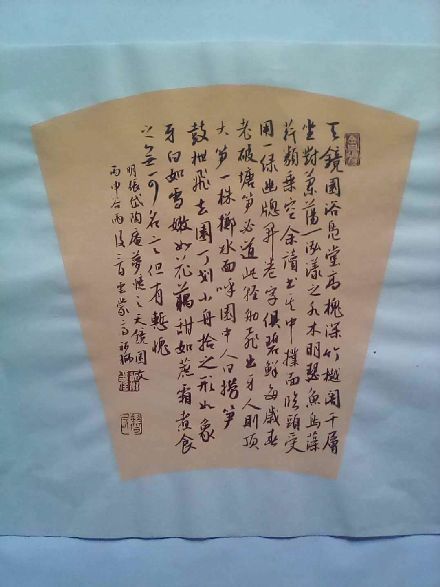 天鏡園浴鳧堂高槐深竹樾闇千層
坐對蘭蕩一泓漾之水木明瑟魚鳥藻
荇類乘空余讀書其中撲面臨頭受
用一綠幽牕開卷字俱碧鮮每歲春
老破塘笋必道此輕舠飛出牙人則頂
大笋一株擲水面呼園中人曰撈笋
鼓枻飛去園丁划小舟拾之形如象
牙白如雪嫩如花藕甜如蔗霜煮食
之無可名言但有慙愧
明張岱陶庵夢憶之天鏡園
丙申谷雨後三日雲蒙